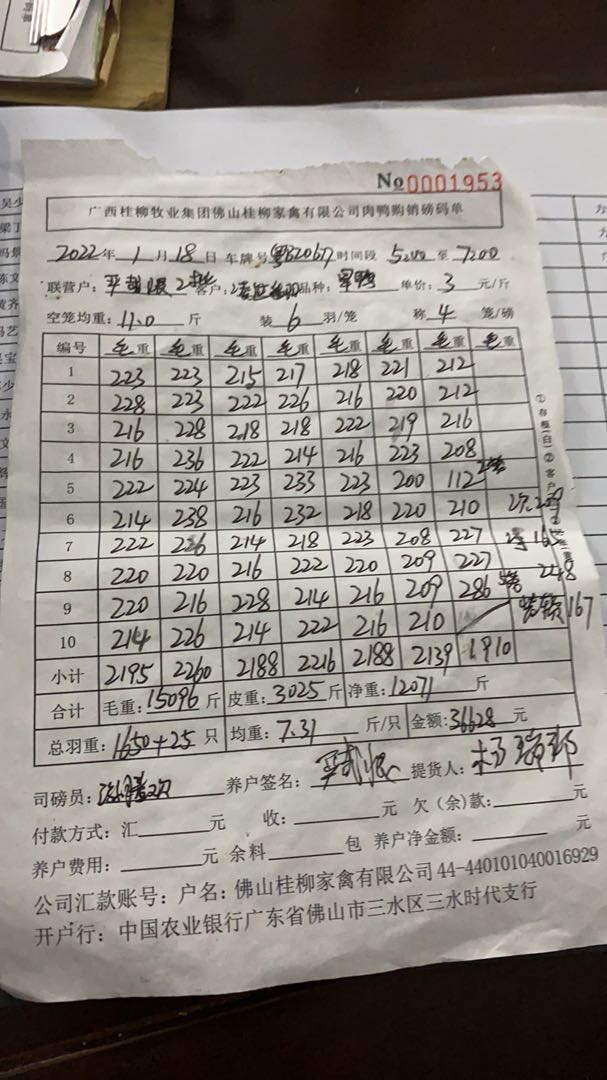 No 0001953
广西桂柳牧业集团佛山桂柳家禽有限公司肉鸭购销磅码单
2022年 1 月 18 日 车牌号 时间段 5:00 至 7:00
联营户: 客户: 品种: 单价: 3 元/斤
空笼均重: 11.0 斤 装 6 羽/笼 称 4 笼/磅
编号 毛重 毛重 毛重 毛重 毛重 毛重 毛重 毛重
1 223 223 215 217 218 221 212
2 228 223 222 226 216 220 212
3 216 228 218 218 222 219 216
4 216 236 222 214 216 223 208
5 222 224 223 233 223 200 112
6 214 238 216 232 218 220 210
7 222 226 214 218 223 208 227
8 220 220 216 222 220 209 227
9 220 216 228 214 216 209 286
10 214 226 214 222 216 210
小计 2195 2260 2188 2216 2188 2139 1910
合计 毛重: 15096 斤 皮重: 3025 斤 净重: 12071 斤
总羽重: 1650+25 只 均重: 7.31 斤/只 金额: 36628 元
司磅员: 养户签名: 提货人:
付款方式: 汇 元 收: 元 欠(余)款: 元
养户费用: 元 余料 包 养户净金额: 元
公司汇款账号: 户名: 佛山桂柳家禽有限公司 44-440101040016929
开户行: 中国农业银行广东省佛山市三水区三水时代支行